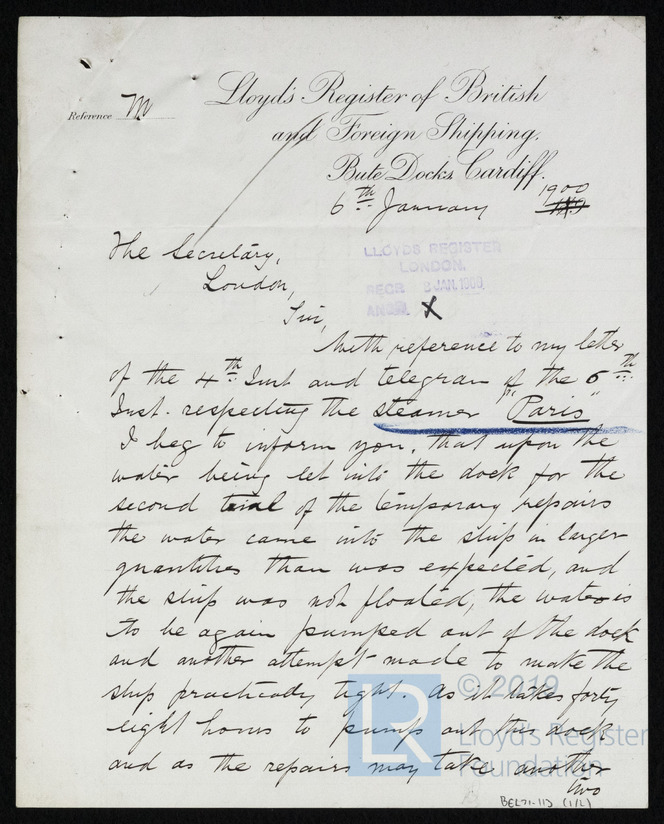 Lloyd's Register of British
Reference M
and Foreign Shipping.
Bute Docks, Cardiff.
6th January 1900
The Secretary,
London,
LLOYDS REGISTER
LONDON.
RECD 8 JAN. 1900
X
Sir,
With reference to my letter
of the 4th Inst and telegram of the 6th
Inst. respecting the steamer "Paris"
I beg to inform you, that upon the
water being let into the dock for the
second trial of the temporary repairs
the water came into the ship in larger
quantities than was expected, and
the ship was not floated, the water is
to be again pumped out of the dock
and another attempt made to make the
ship practically tight. As it takes forty
eight hours to pump out this dock
and as the repairs may take another
two
© 2019
LR
Lloyd's Register
Foundation
BEL71-113 (1/2)